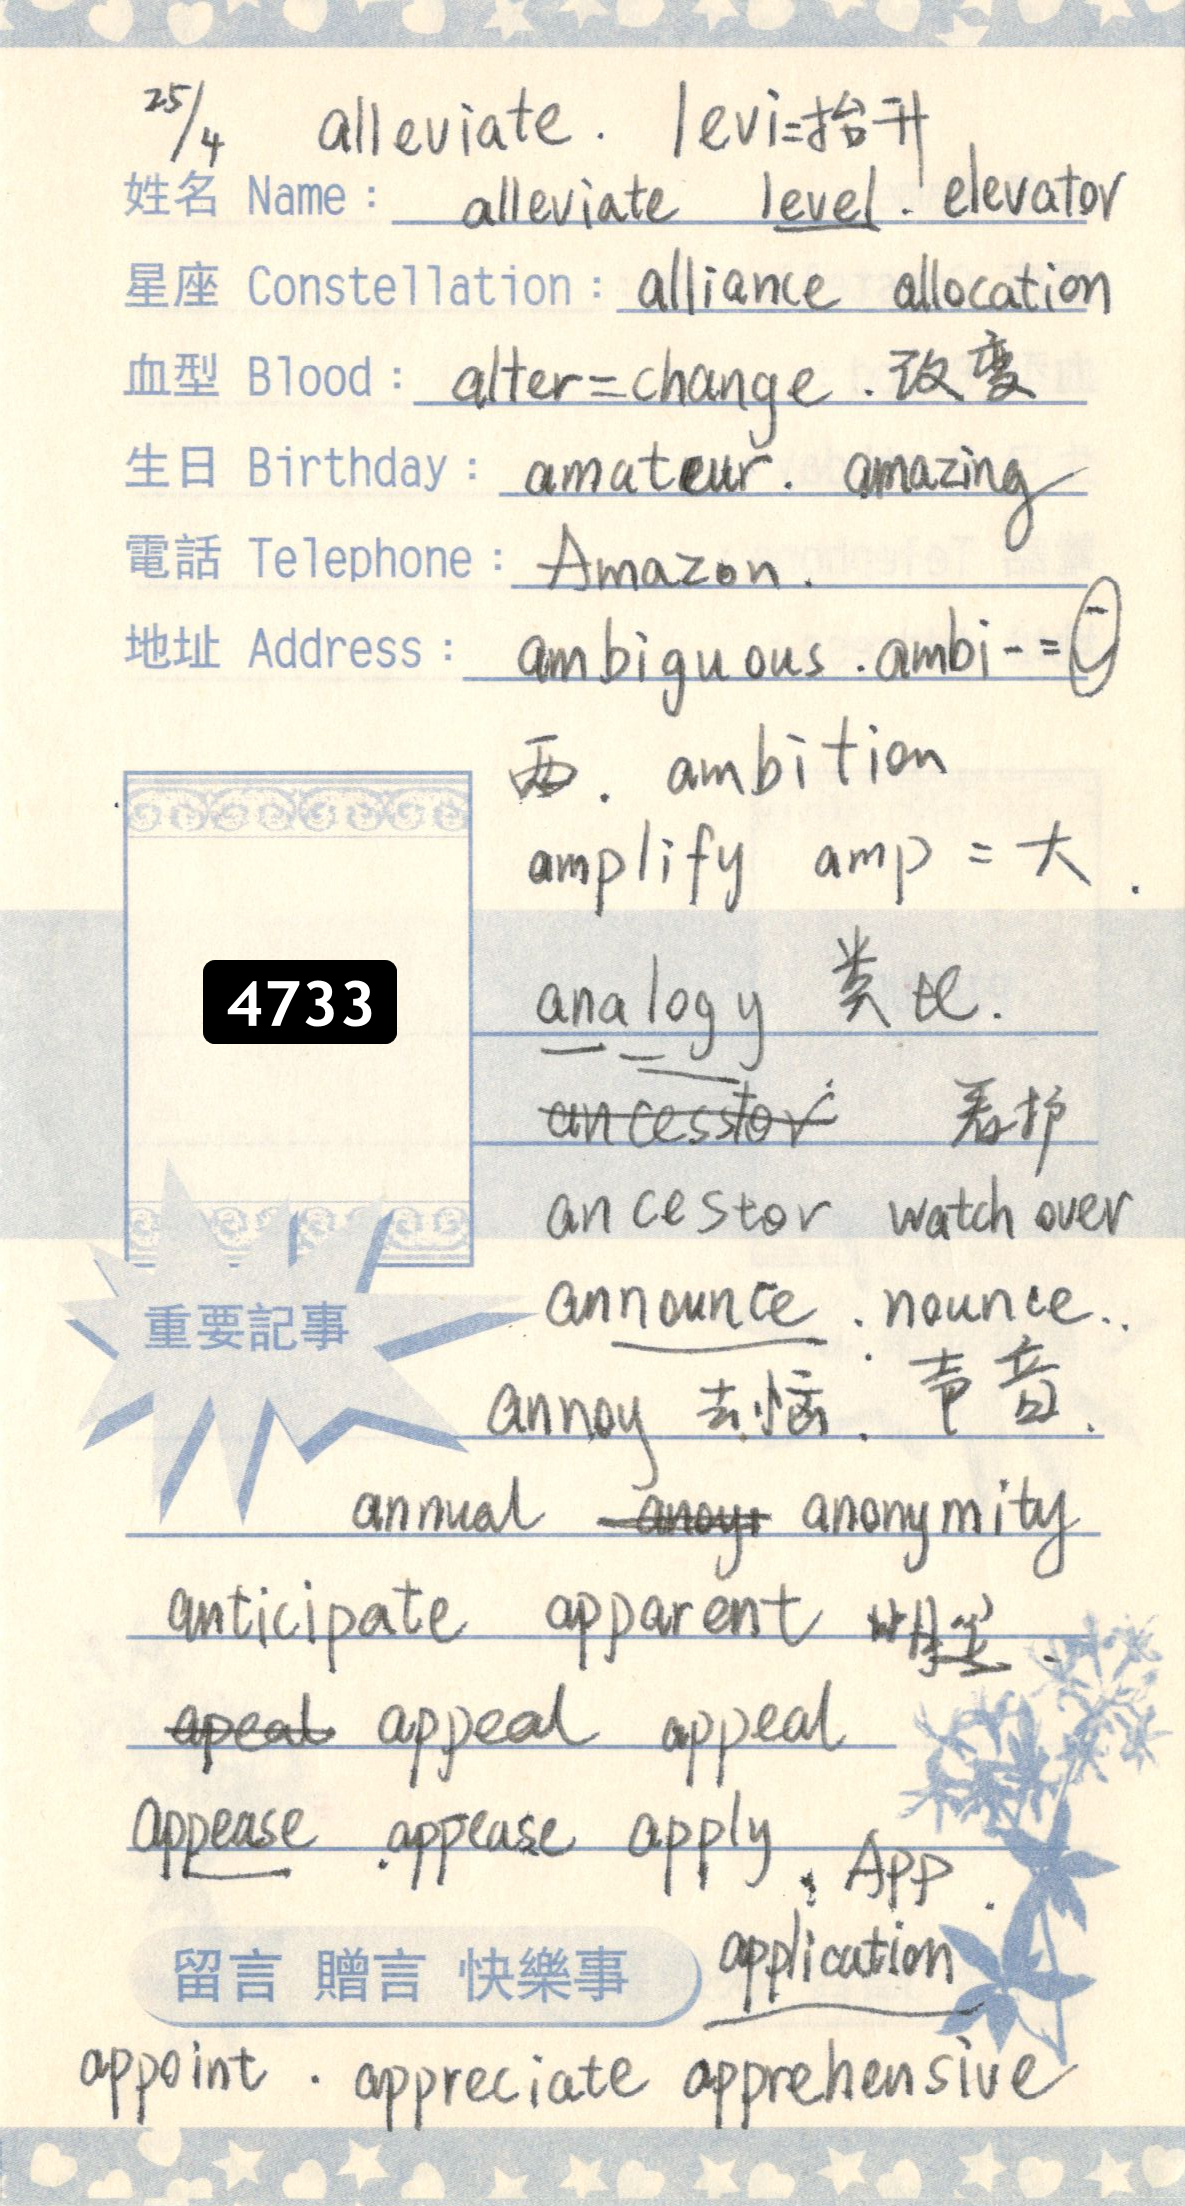 25/4 alleviate. levi=抬升
姓名 Name: alleviate level. elevator
星座 Constellation: alliance allocation
血型 Blood: alter=change.改变
生日 Birthday: amateur. amazing
電話 Telephone: Amazon.
地址 Address: ambiguous.ambi-=
西. ambition
amplify amp = 大.
4733
analogy 类比.
ancesstor 看护
ancestor watch over
announce. nounce..
重要記事
annoy 去恼. 声音.
annual anonymity
anticipate apparent
apeal appeal appeal
appease .appease apply
. App.
application
留言 贈言 快樂事
appoint . appreciate apprehensive